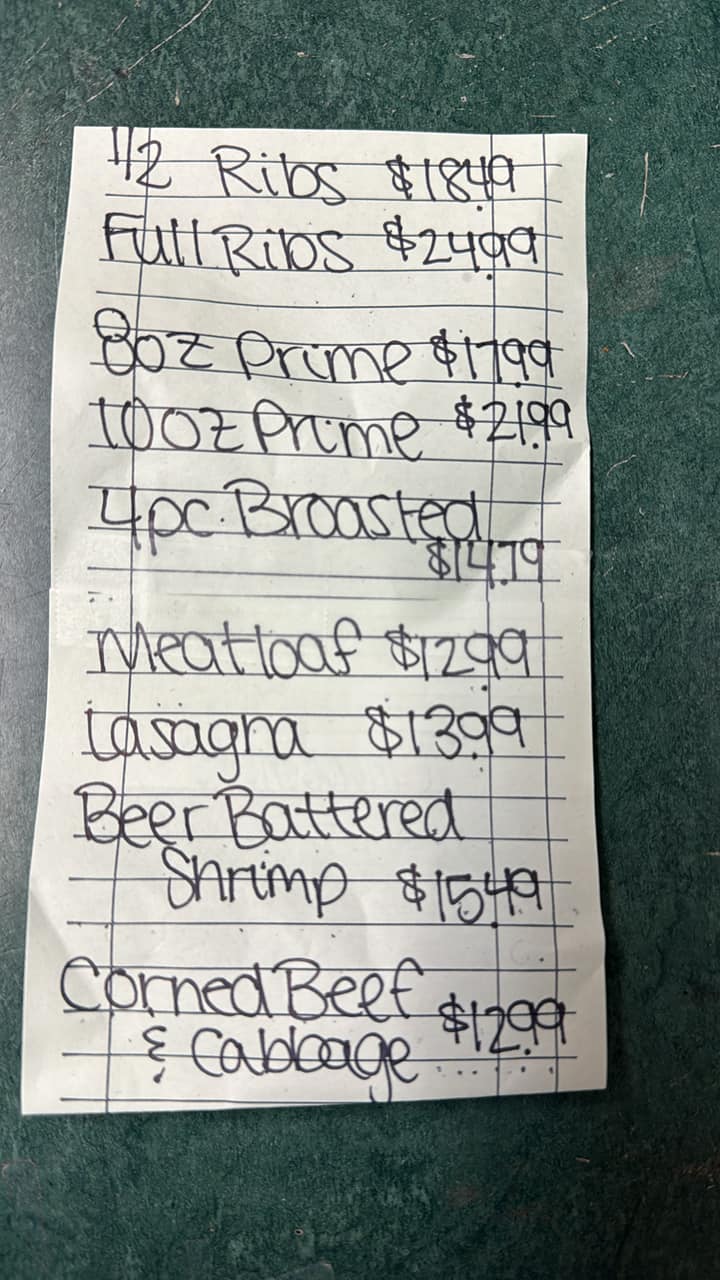 1/2 Ribs $18.49
Full Ribs $24.99
8oz Prime $17.99
10oz Prime $21.99
4pc. Broasted
$14.79
Meatloaf $12.99
Lasagna $13.99
Beer Battered
Shrimp $15.49
Corned Beef
& Cabbage $12.99